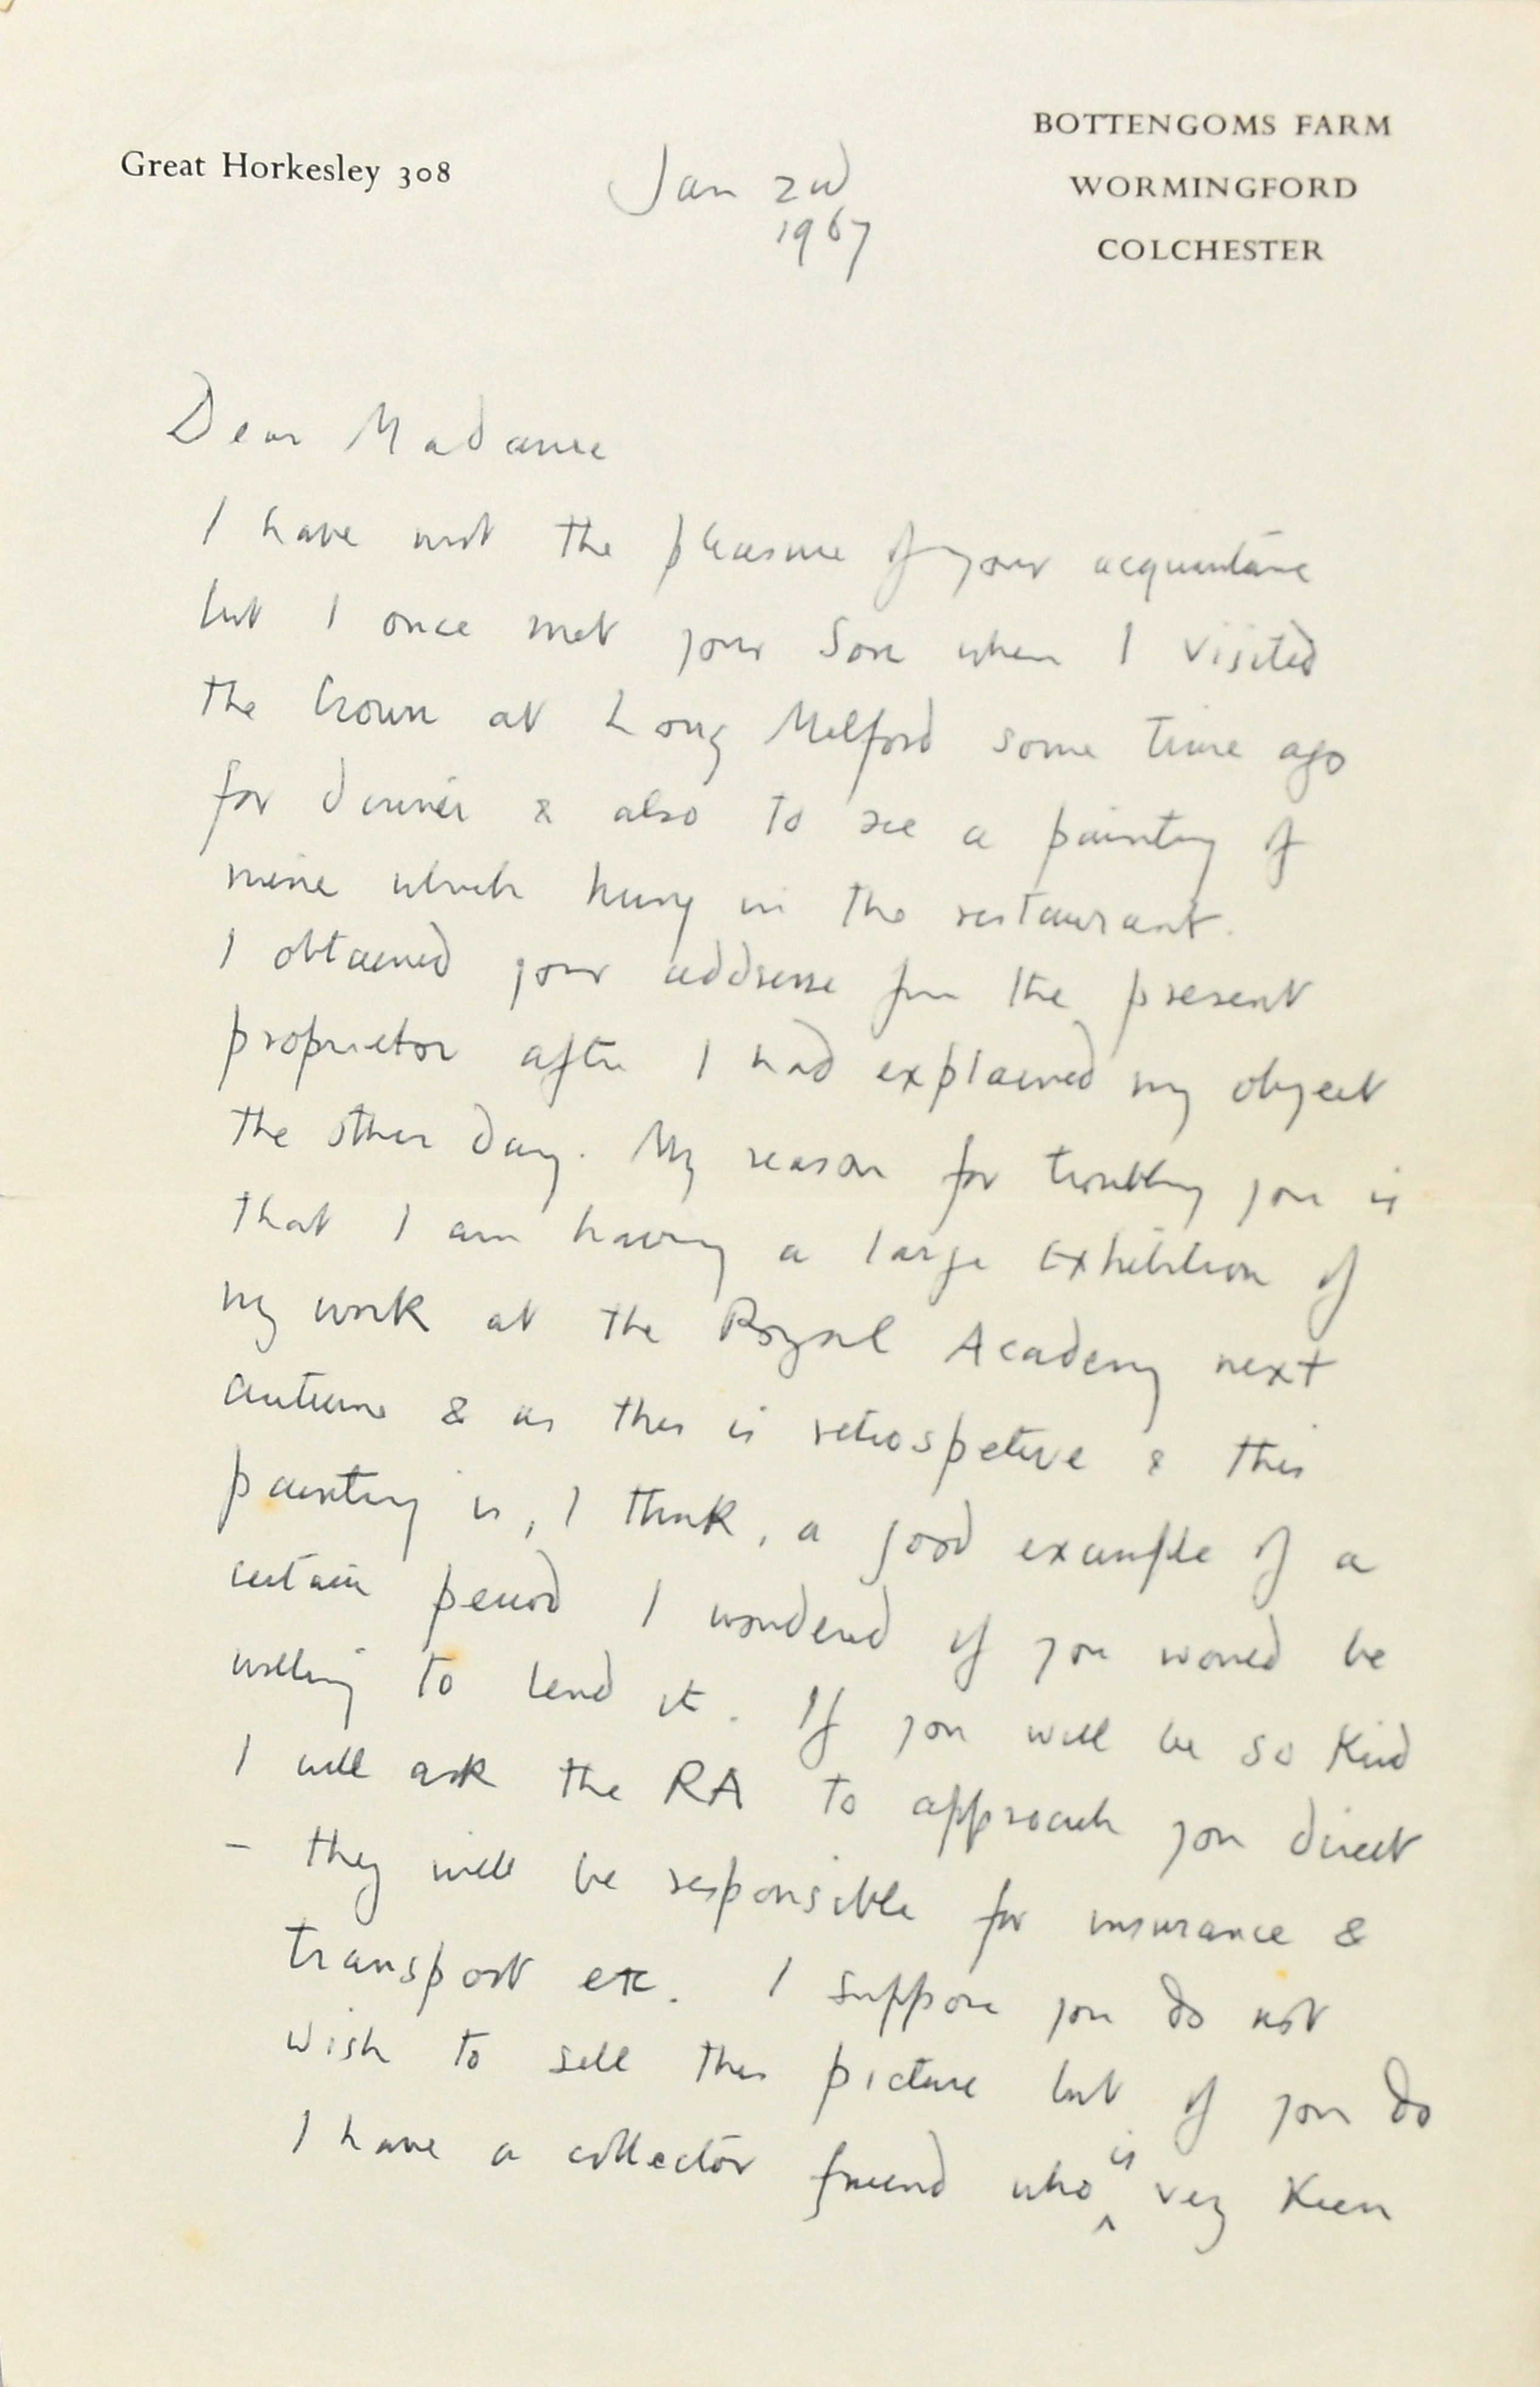 Great Horkesley 308
BOTTENGOMS FARM
WORMINGFORD
COLCHESTER
Jan 2nd
1967
Dear Madame
I have not the pleasure of your acquaintance
but I once met your Son when I visited
the Crown at Long Melford some time ago
for dinner & also to see a painting of
mine which hung in the restaurant.
I obtained your addresse from the present
proprietor after I had explained my object
the other day. My reason for troubling you is
that I am having a large Exhibition of
my work at the Royal Academy next
autumn & as this is retrospetive & this
painting is, I think, a good example of a
certain period I wondered if you would be
willing to lend it. If you will be so Kind
I will ask the RA to approach you direct
- they will be responsible for insurance &
transport etc. I suppose you do not
wish to sell this picture but if you do
I have a collector friend who is very Keen